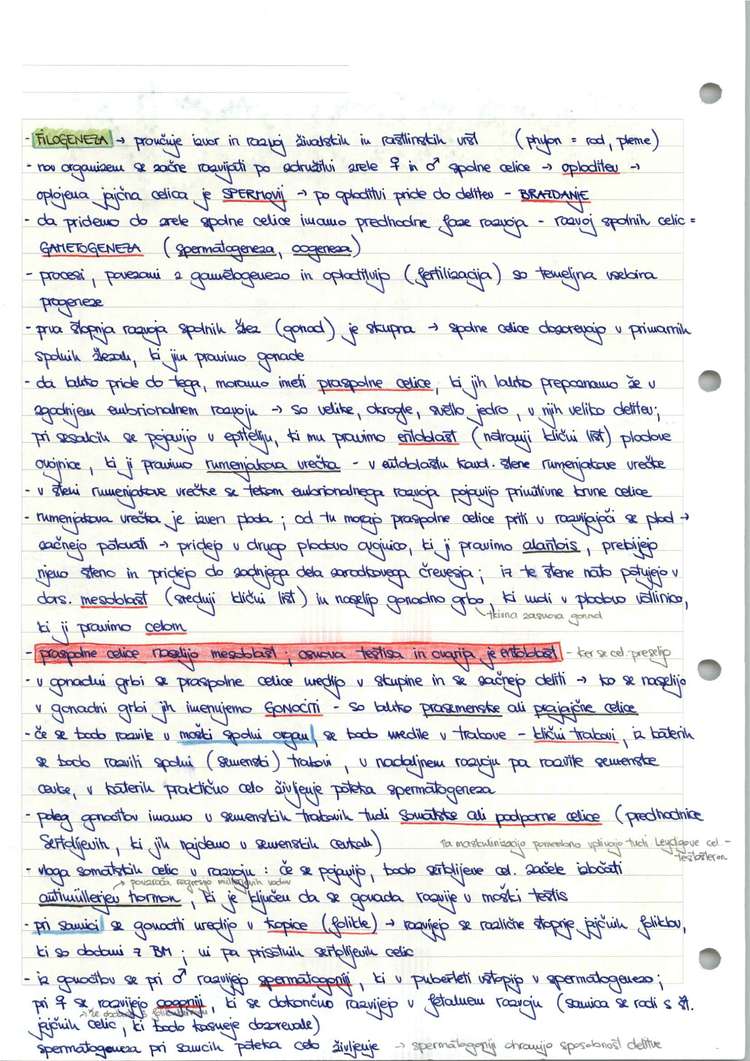 - FILOGENEZA → proučuje izvor in razvoj živalskih in rastlinskih vrst (phylon = rod, pleme)
- nov organizem se začne razvijati po združitvi zrele ♀ in ♂ spolne celice → oploditev →
oplojena jajčna celica je SPERMOVIJ → po oploditvi pride do delitev - BRAZDANJE
- da pridemo do zrele spolne celice imamo predhodne faze razvoja - razvoj spolnih celic =
GAMETOGENEZA (spermatogeneza, oogeneza)
- procesi, povezani z gametogenezo in oploditvijo (fertilizacija) so temeljna vsebina
progeneze
- prva stopnja razvoja spolnih žlez (gonad) je skupna → spolne celice dozorevajo v primarnih
spolnih žlezah, ki jim pravimo gonade
- da lahko pride do tega, moramo imeti praspolne celice, ki jih lahko prepoznamo že v
zgodnjem embrionalnem razvoju → so velike, okrogle, svetlo jedro, v njih veliko delitev;
pri sesalcih se pojavijo v epiteliju, ki mu pravimo entoblast (notranji klični list) plodove
ovojnice, ki ji pravimo rumenjakova vrečka - v entoblastu kavd. stene rumenjakove vrečke
- v steni rumenjakove vrečke se tekom embrionalnega razvoja pojavijo primitivne krvne celice
- rumenjakova vrečka je izven ploda; od tu morajo praspolne celice priti v razvijajoči se plod →
začnejo potovati → pridejo v drugo plodovo ovojnico, ki ji pravimo alantois, prebijejo
njeno steno in pridejo do zadnjega dela zarodkovega črevesja; iz te stene nato potujejo v
dors. mesoblast (srednji klični list) in naselijo gonadno grbo, ki vodi v plodovo votlinico,
tkivna zasnova gonad
ki ji pravimo celom
- praspolne celice naselijo mesoblast; osnova testisa in ovarija je entoblast - ker se cel. preselijo
- v gonadni grbi se praspolne celice uredijo v skupine in se začnejo deliti → ko se naselijo
v gonadni grbi jih imenujemo GONOCITI - so lahko prasemenske ali prajajčne celice
- če se bodo razvile v moški spolni organ, se bodo uredile v trakove - klični trakovi, iz katerih
se bodo razvili spolni (semenski) trakovi, v nadaljnem razvoju pa razvite semenske
cevke, v katerih praktično celo življenje poteka spermatogeneza
- poleg gonocitov imamo v semenskih trakovih tudi somatske ali podporne celice (predhodnice
Sertolijevih, ki jih najdemo v semenskih cevkah) na maskulinizacijo posredno vplivajo tudi Leydigove cel. -
testosteron
- vloga somatskih celic v razvoju: če se pojavijo, bodo sertolijeve cel. začele izločati
povzroča regresijo müllerjevih vodov
antimüllerjev hormon, ki je ključen da se gonada razvije v moški testis
- pri samici se gonociti uredijo v kopice (folikle) → razvijejo se različne stopnje jajčnih foliklov,
ki so obdani z BM; ni pa prisotnih sertolijevih celic
- iz gonocitov se pri ♂ razvijejo spermatogoniji, ki v puberteti vstopijo v spermatogenezo;
pri ♀ se razvijejo oogoniji, ki se dokončno razvijejo v fetalnem razvoju (samica se rodi s št.
jajčnih celic, ki bodo kasneje dozorevale)
spermatogeneza pri samcih poteka celo življenje → spermatogoniji ohranijo sposobnost delitve